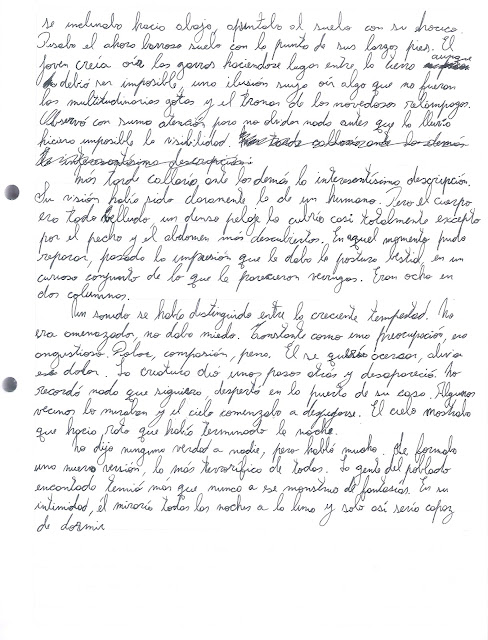 se inclinaba hacia abajo, apuntaba al suelo con su hocico.
Pisaba el ahora barroso suelo con la punta de sus largos pies. El
joven creía oír las garras haciéndose lugar entre la tierra aunque
debió ser imposible, una ilusión suya oír algo que no fueran
las multitudinarias gotas y el tronar de los novedosos relámpagos.
Observó con suma atención para no olvidar nada antes que la lluvia
hiciera imposible la visibilidad. Más tarde callaría ante los demás
la interesantísima descripción.
Más tarde callaría ante los demás la interesantísima descripción.
Su visión había sido claramente la de un humano. Pero el cuerpo
era todo belludo, un denso pelaje lo cubría casi totalmente excepto
por el pecho y el abdomen más descubiertos. En aquel momento pudo
reparar, pasada la impresión que le daba la postura bestial, en un
curioso conjunto de lo que le parecieron verrugas. Eran ocho en
dos columnas.
Un sonido se había distinguido entre la creciente tempestad. No
era amenazador, no daba miedo. Constante como una preocupación, era
angustioso. Dolor, compasión, pena. Él se quería acercar, aliviar
ese dolor. La criatura dió unos pasos atrás y desapareció. No
recordó nada que siguiera, despertó en la puerta de su casa. Algunos
vecinos lo miraban y el cielo comenzaba a despejarse. El cielo mostraba
que hacía rato que había terminado la noche.
No dijo ninguna verdad a nadie, pero habló mucho. Se formaba
una nueva versión, la más terrorífica de todas. La gente del poblado
encantado temió mas que nunca a ese monstruo de fantasías. En su
intimidad, él miraría todas las noches a la luna y solo así sería capaz
de dormir